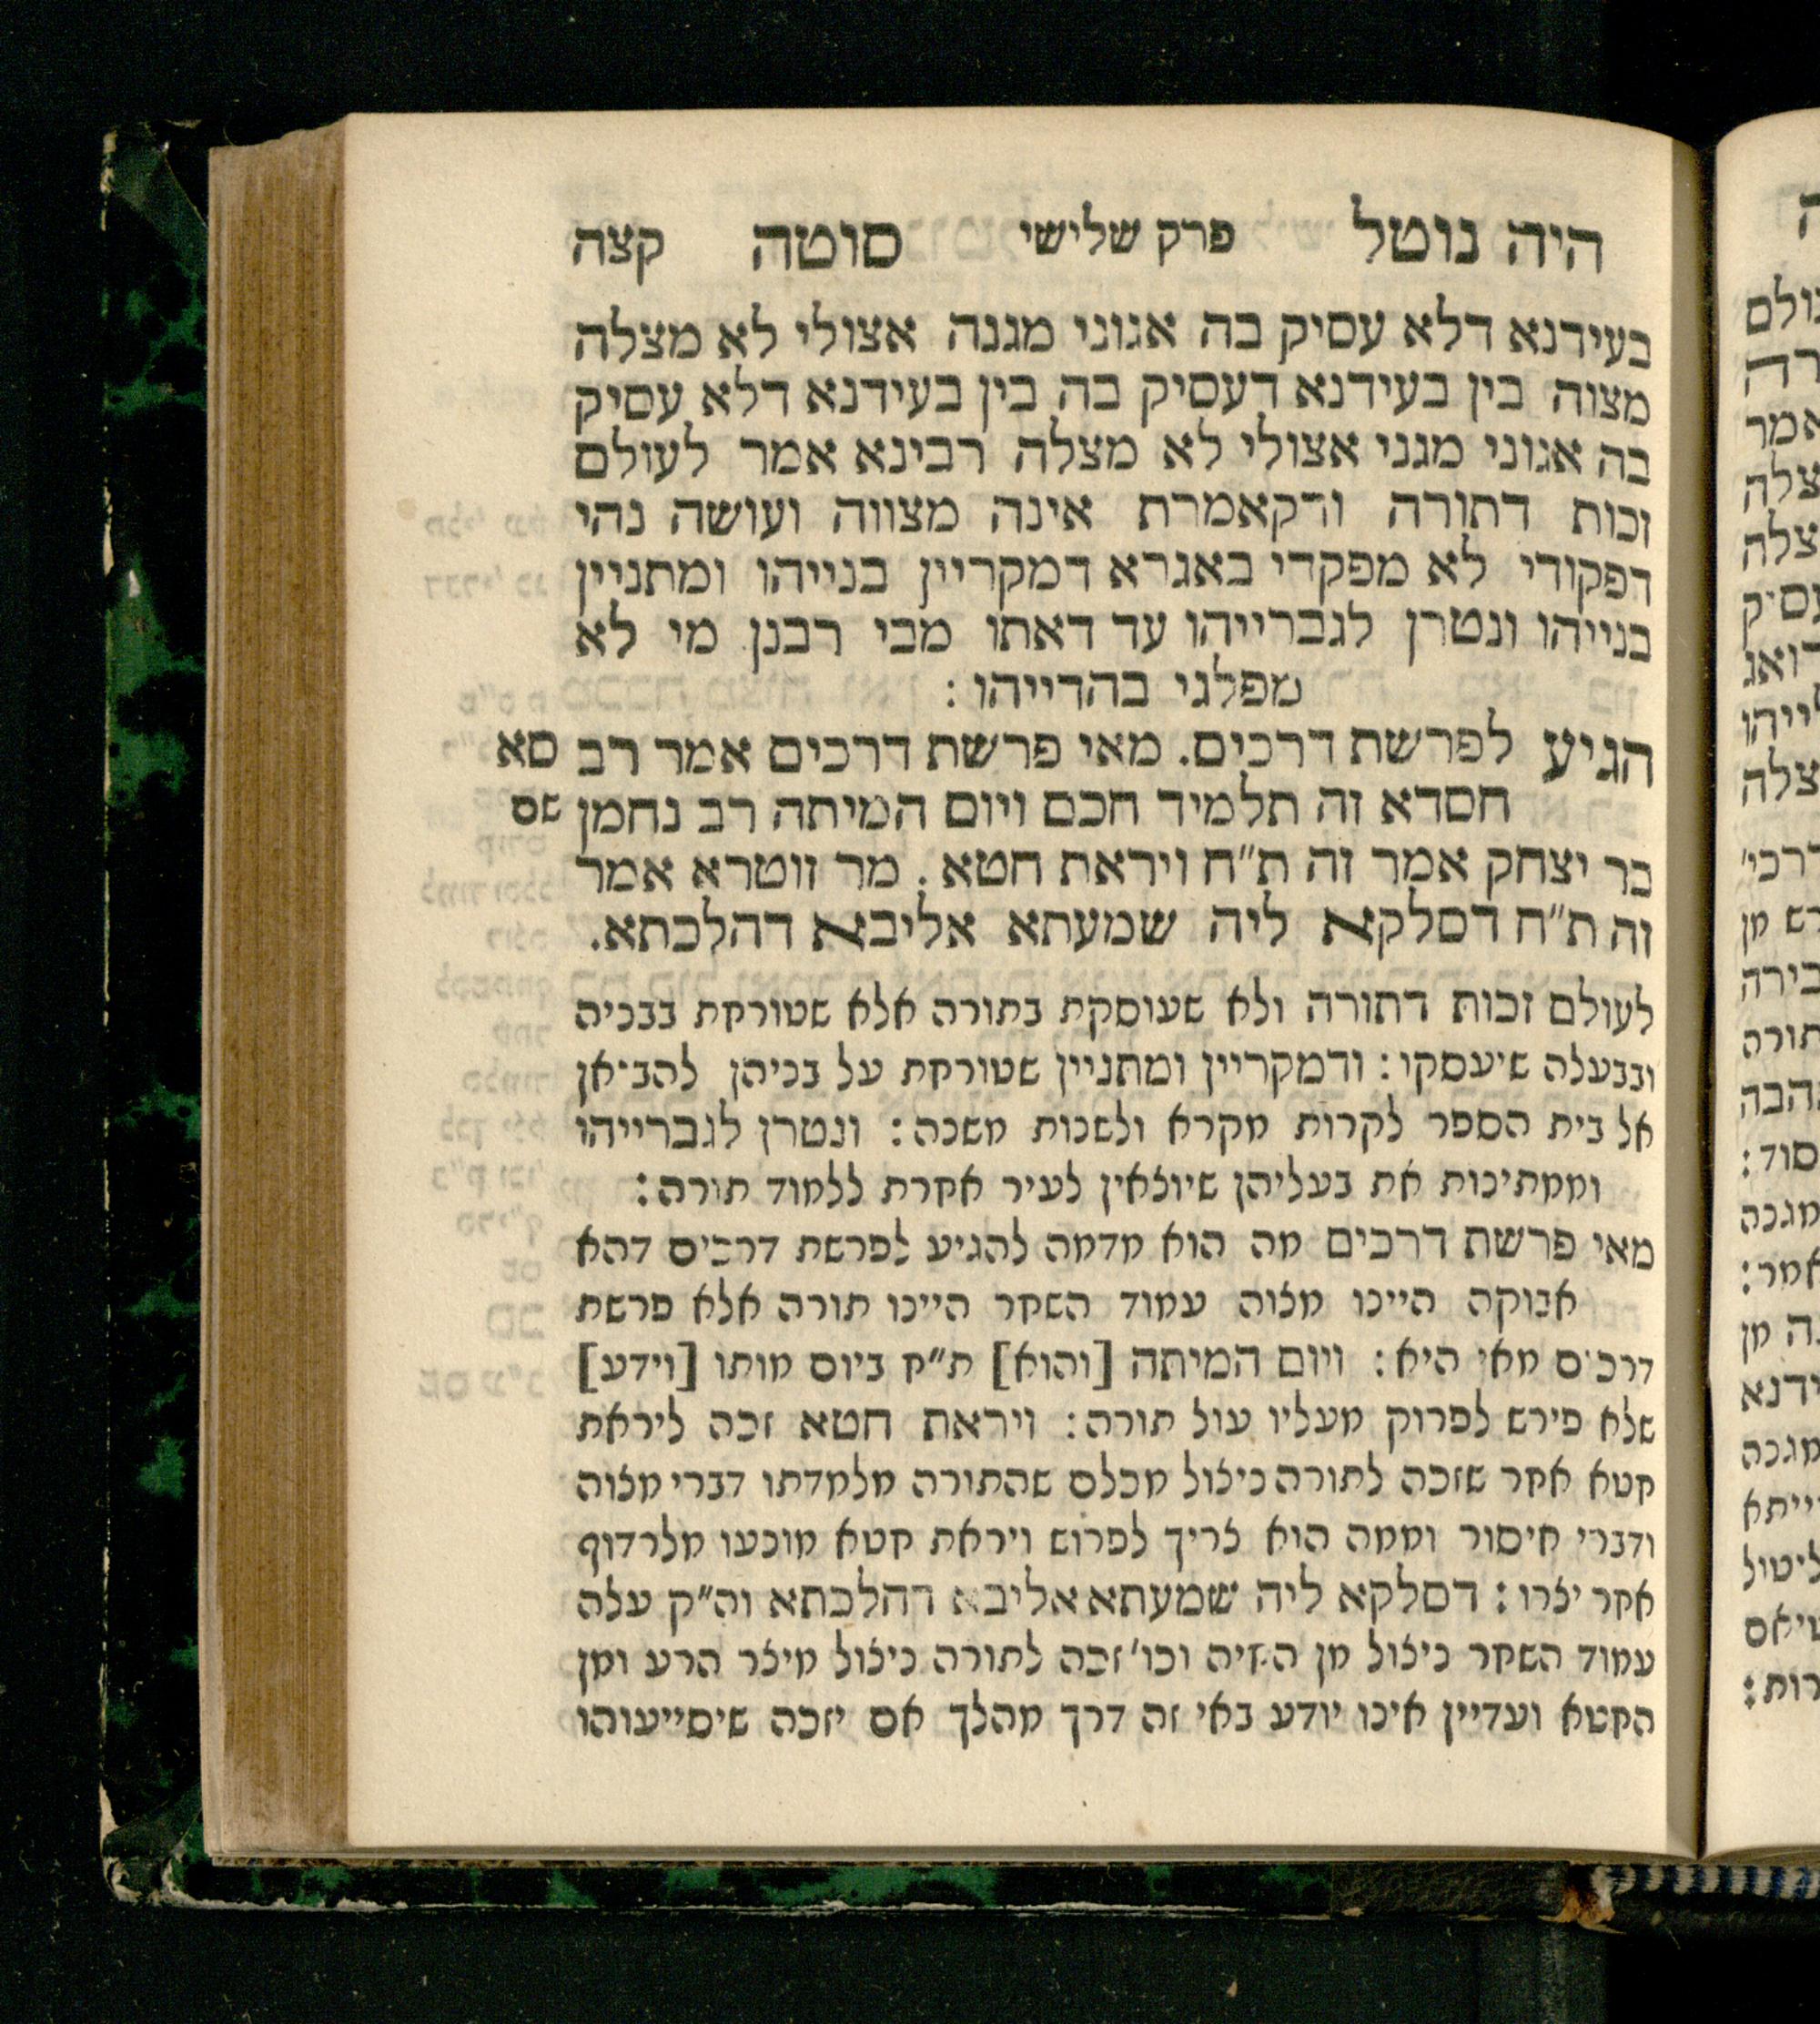 היה נוטל פרק שלישי סוטה קצה
בעידנא דלא עסיק בה אגוני מגנה אצולי לא מצלה
מצוה בין בעידנא דעסיק בה בין בעידנא דלא עסיק
בה אגוני מגני אצולי לא מצלה רבינא אמר לעולם
זכות דתורה ודקאמרת אינה מצווה ועושה נהי
דפקודי לא מפקדי באגרא דמקריין בנייהו ומתניין
בנייהו ונטרן לגברייהו עד דאתו מבי רבנן מי לא
מפלגי בהדייהו :
הגיע לפרשת דרכים. מאי פרשת דרכים אמר רב סא
חסדא זה תלמיד חכם ויום המיתה רב נחמן שם
בר יצחק אמר זה ת״ח ויראת חטא. מר זוטרא אמר
זה ת״ח דסלקא ליה שמעתא אליבא דהלכתא.
לעולם זכות דתורה ולא שעוסקת בתורה אלא שטורחת בבניה
ובבעלה שיעסקו : ודמקריין ומתניין שטורחת על בניהן להביאן
אל בית הספר לקרות מקרא ולשנות משנה : ונטרן לגברייהו
וממתינות את בעליהן שיוצאין לעיר אחרת ללמוד תורה :
מאי פרשת דרכים מה הוא מדמה להגיע לפרשת דרכים דהא
אבוקה היינו מצוה עמוד השחר היינו תורה אלא פרשת
דרכים מאי היא : ויום המיתה [והוא] ת״ח ביום מותו [וידע]
שלא פירש לפרוק מעליו עול תורה : ויראת חטא זכה ליראת
חטא אחר שזכה לתורה ניצול מכלם שהתורה מלמדתו דברי מצוה
ודברי איסור וממה הוא צריך לפרוש ויראת חטא מונעו מלרדוף
אחר יצרו : דסלקא ליה שמעתא אליבא דהלכתא וה״ק עלה
עמוד השחר ניצול מן החיה וכו׳ זכה לתורה ניצול מיצר הרע ומן
החטא ועדיין אינו יודע באי זה דרך מהלך אם יזכה שיסייעוהו